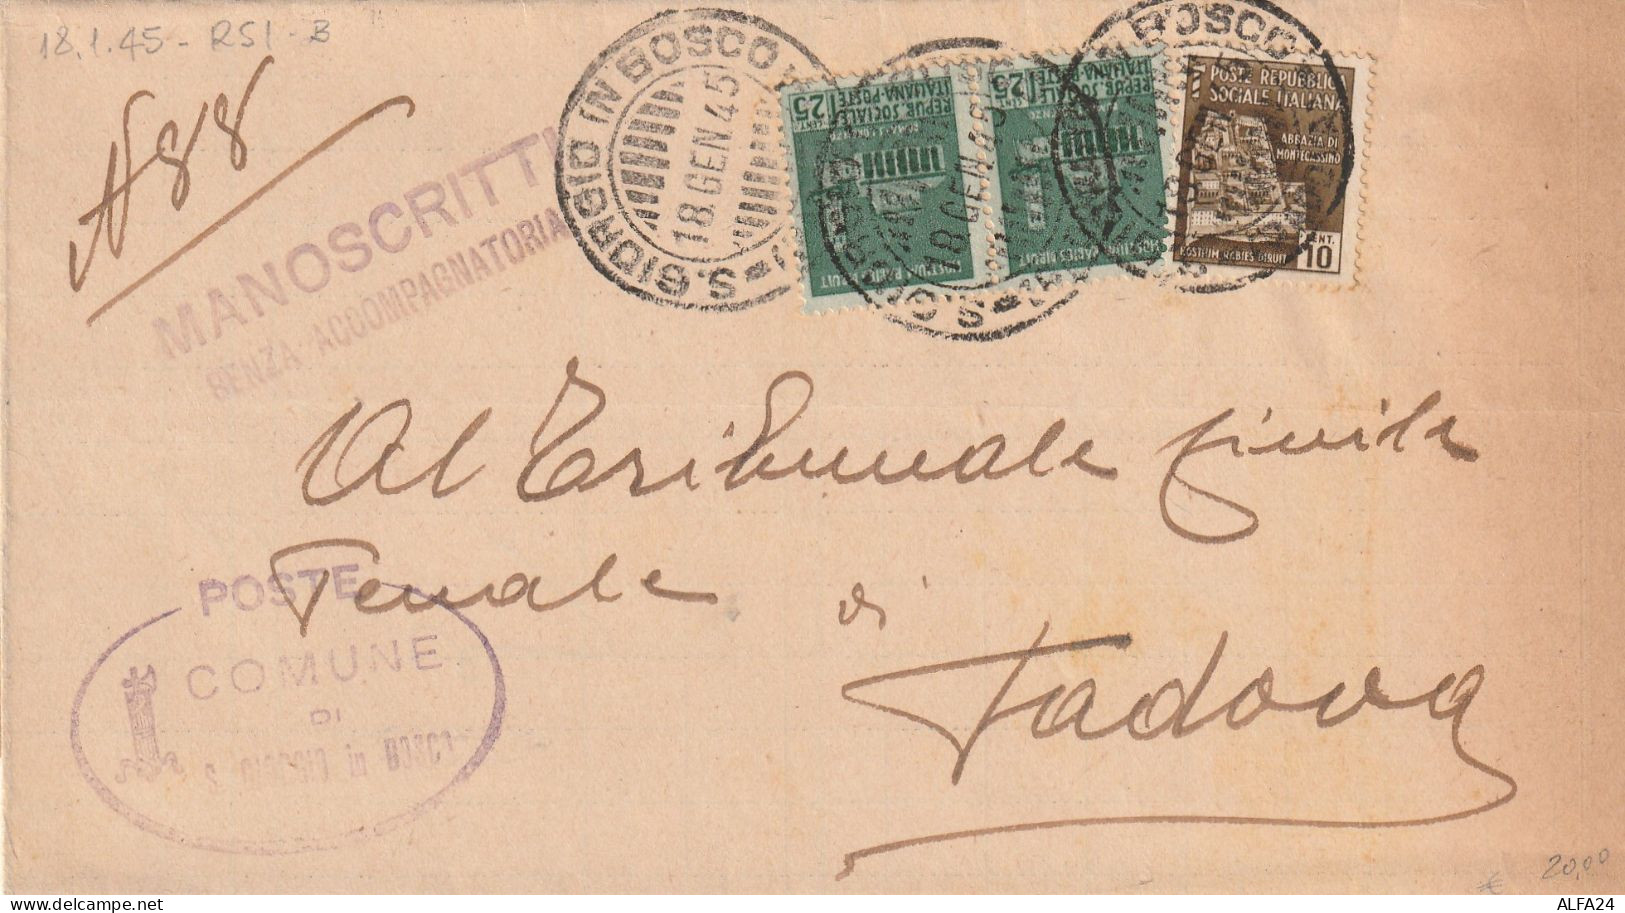 18.1.45 - RSI - B
N 88
MANOSCRITTI
SENZA ACCOMPAGNATORIA
S. GIORGIO IN BOSCO
18. GEN. 45
25
REPUB. SOCIALE
ITALIANA-POSTE
HOSTIUM RABIES DIRUIT
25
REPUB. SOCIALE
ITALIANA-POSTE
HOSTIUM RABIES DIRUIT
18 GEN 45
BOSCO
POSTE REPUBBLICA
SOCIALE ITALIANA
ABBAZIA DI
MONTECASSINO
HOSTIUM RABIES DIRUIT
CENT.
10
Al Tribunale Civile
Penale di
Padova
POSTE
COMUNE
DI
S. GIORGIO in BOSCO
€ 20,00
ALFA24